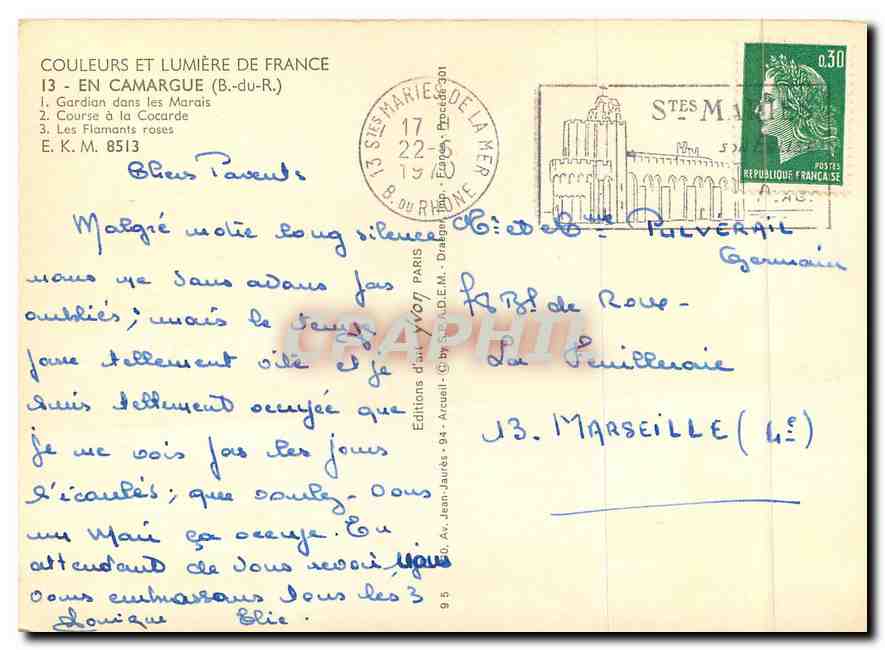 COULEURS ET LUMIÈRE DE FRANCE
13 - EN CAMARGUE (B.-du-R.)
1. Gardian dans les Marais
2. Course à la Cocarde
3. Les Flamants roses
E. K. M. 8513
Chers Parents
Malgré notre long silence
nous ne vous avons pas
oubliés; mais le temps
passe tellement vite et je
suis tellement occupée que
je ne vois pas les jours
s'écoulés; que voulez-vous
un Mari ça occupe. En
attendant de vous revoir, nous
vous embrassons tous les 3
Monique Elie.
Editions d'art yvon PARIS
95 0, Av. Jean-Jaurès - 94 - Arcueil - © by S.P.A.D.E.M. - Draeger, Imp. - France - Procédé 301
13 STES MARIES DE LA MER
17 H
22-5
1970
B. DU RHÔNE
STES MARIES
SON EGLISE
0,30
POSTES
REPUBLIQUE FRANÇAISE
Mr et Mme PULVÉRAIL
Germain
Bd de Roux -
La Feuilleraie
13. MARSEILLE (4e)
CPAPHIL